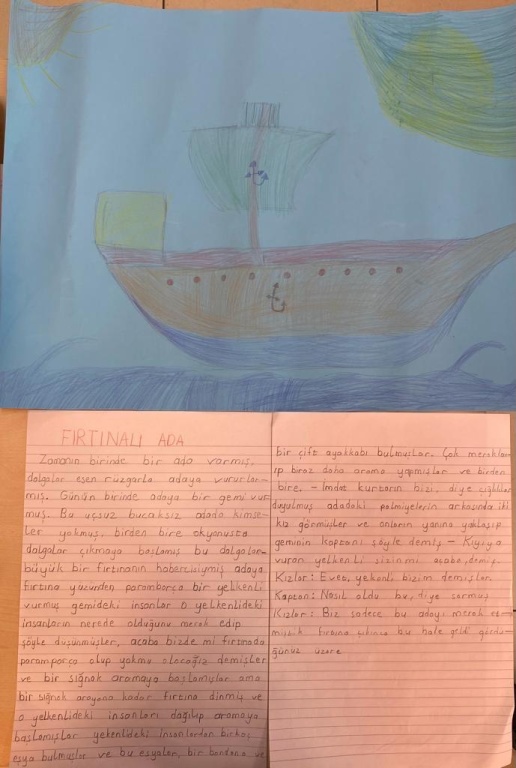 FIRTINALI ADA
Zamanın birinde bir ada varmış,
dalgalar esen rüzgarla adaya vururlar-
mış. Günün birinde adaya bir gemi vur
muş. Bu uçsuz bucaksız adada kimse-
ler yokmuş, birden bire okyonusta
dalgalar çıkmaya başlamış bu dalgalar
büyük bir fırtınanın habercisiymiş adaya
fırtına yüzünden paramparça bir yelkenli
vurmuş gemideki insanlar o yelkenlideki
insanların nerede olduğunu merak edip
şöyle düşünmüşler, acaba bizde mi fırtınada
paramparça olup yokmu olacağız demişler
ve bir sığnak aramaya başlamışlar ama
bir sığnak arayana kadar fırtına dinmiş ve
o yelkenlideki insanları dağılıp aramaya
başlamışlar yelkenlideki insanlardan birkaç
eşya bulmuşlar ve bu eşyalar, bir bandana ve
bir çift ayakkabı bulmuşlar. Çok meraklan-
ıp biraz daha arama yapmışlar ve birden
bire, - İmdat kurtarın bizi, diye çığlıklar
duyulmuş adadaki palmiyelerin arkasında iki
kız görmüşler ve onların yanına yaklaşıp
geminin kaptanı şöyle demiş - Kıyıya
vuran yelkenli sizinmi acaba, demiş.
Kızlar: Evet, yelkenli bizim demişler.
Kaptan: Nasıl oldu bu, diye sormuş
Kızlar: Biz sadece bu adayı merak et-
miştik fırtına çıkınca bu hale geldi gördü-
ğünüz üzere